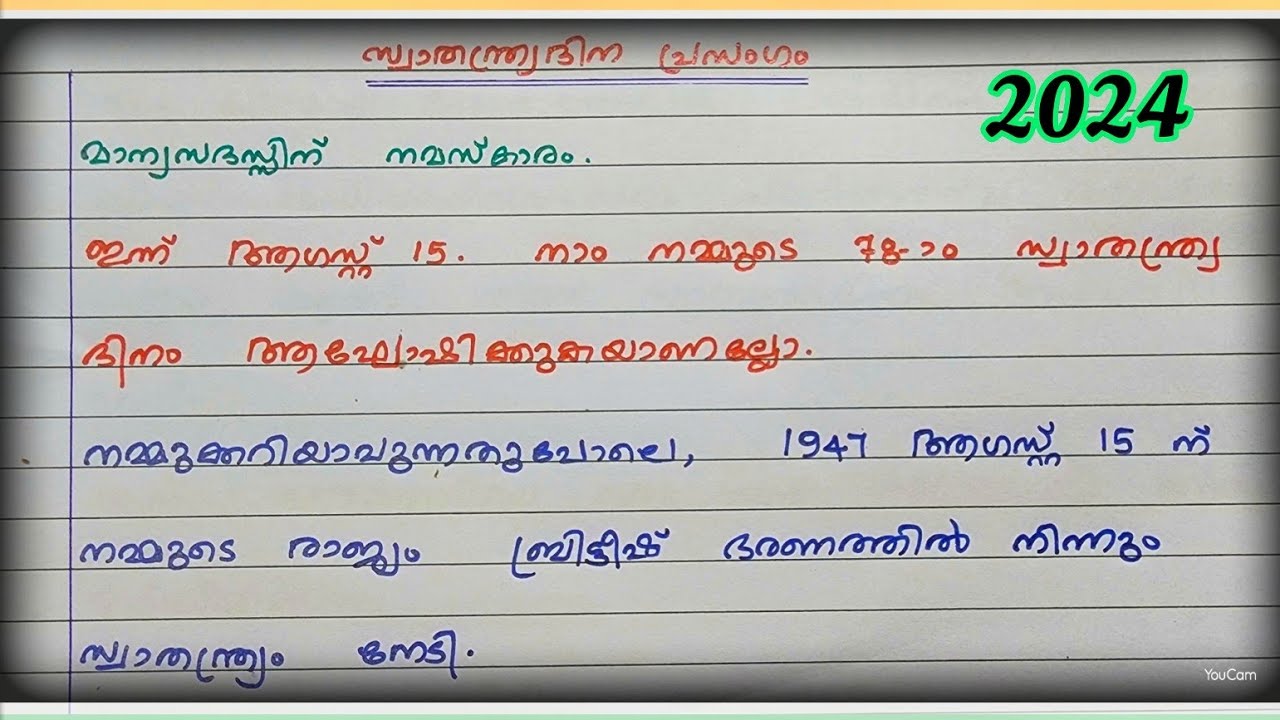 സ്വാതന്ത്ര്യദിന പ്രസംഗം
2024
മാന്യസദസ്സിന് നമസ്കാരം.
ഇന്ന് ആഗസ്റ്റ് 15. നാം നമ്മുടെ 78-ാം സ്വാതന്ത്ര്യ
ദിനം ആഘോഷിക്കുകയാണല്ലോ.
നമ്മുക്കറിയാവുന്നതുപോലെ, 1947 ആഗസ്റ്റ് 15 ന്
നമ്മുടെ രാജ്യം ബ്രിട്ടീഷ് ഭരണത്തിൽ നിന്നും
സ്വാതന്ത്ര്യം നേടി.
YouCam